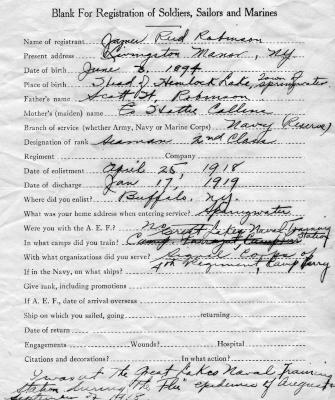 Blank For Registration of Soldiers, Sailors and Marines
Name of registrant James Reed Robinson
Present address Livingston Manor, N.Y.
Date of birth June 8, 1894
Place of birth Head of Hemlock Lake, Town of Springwater
Father's name Scott H. Robinson
Mother's (maiden) name Hattie Collins
Branch of service (whether Army, Navy or Marine Corps) Navy (Reserve)
Designation of rank Seaman 2nd Class
Regiment Company
Date of enlistment April 25, 1918
Date of discharge Jan 17, 1919
Where did you enlist? Buffalo, N.Y.
What was your home address when entering service? Springwater
Were you with the A. E. F.? No
In what camps did you train? Great Lakes Naval Training Station
With what organizations did you serve? Signal Corps of
If in the Navy, on what ships? 4th Regiment, Camp Perry
Give rank, including promotions
If A. E. F., date of arrival overseas
Ship on which you sailed, going returning
Date of return
Engagements Wounds? Hospital
Citations and decorations? In what action?
I was at the Great Lakes Naval Training
Station during the Flu epidemic of August
September of 1918